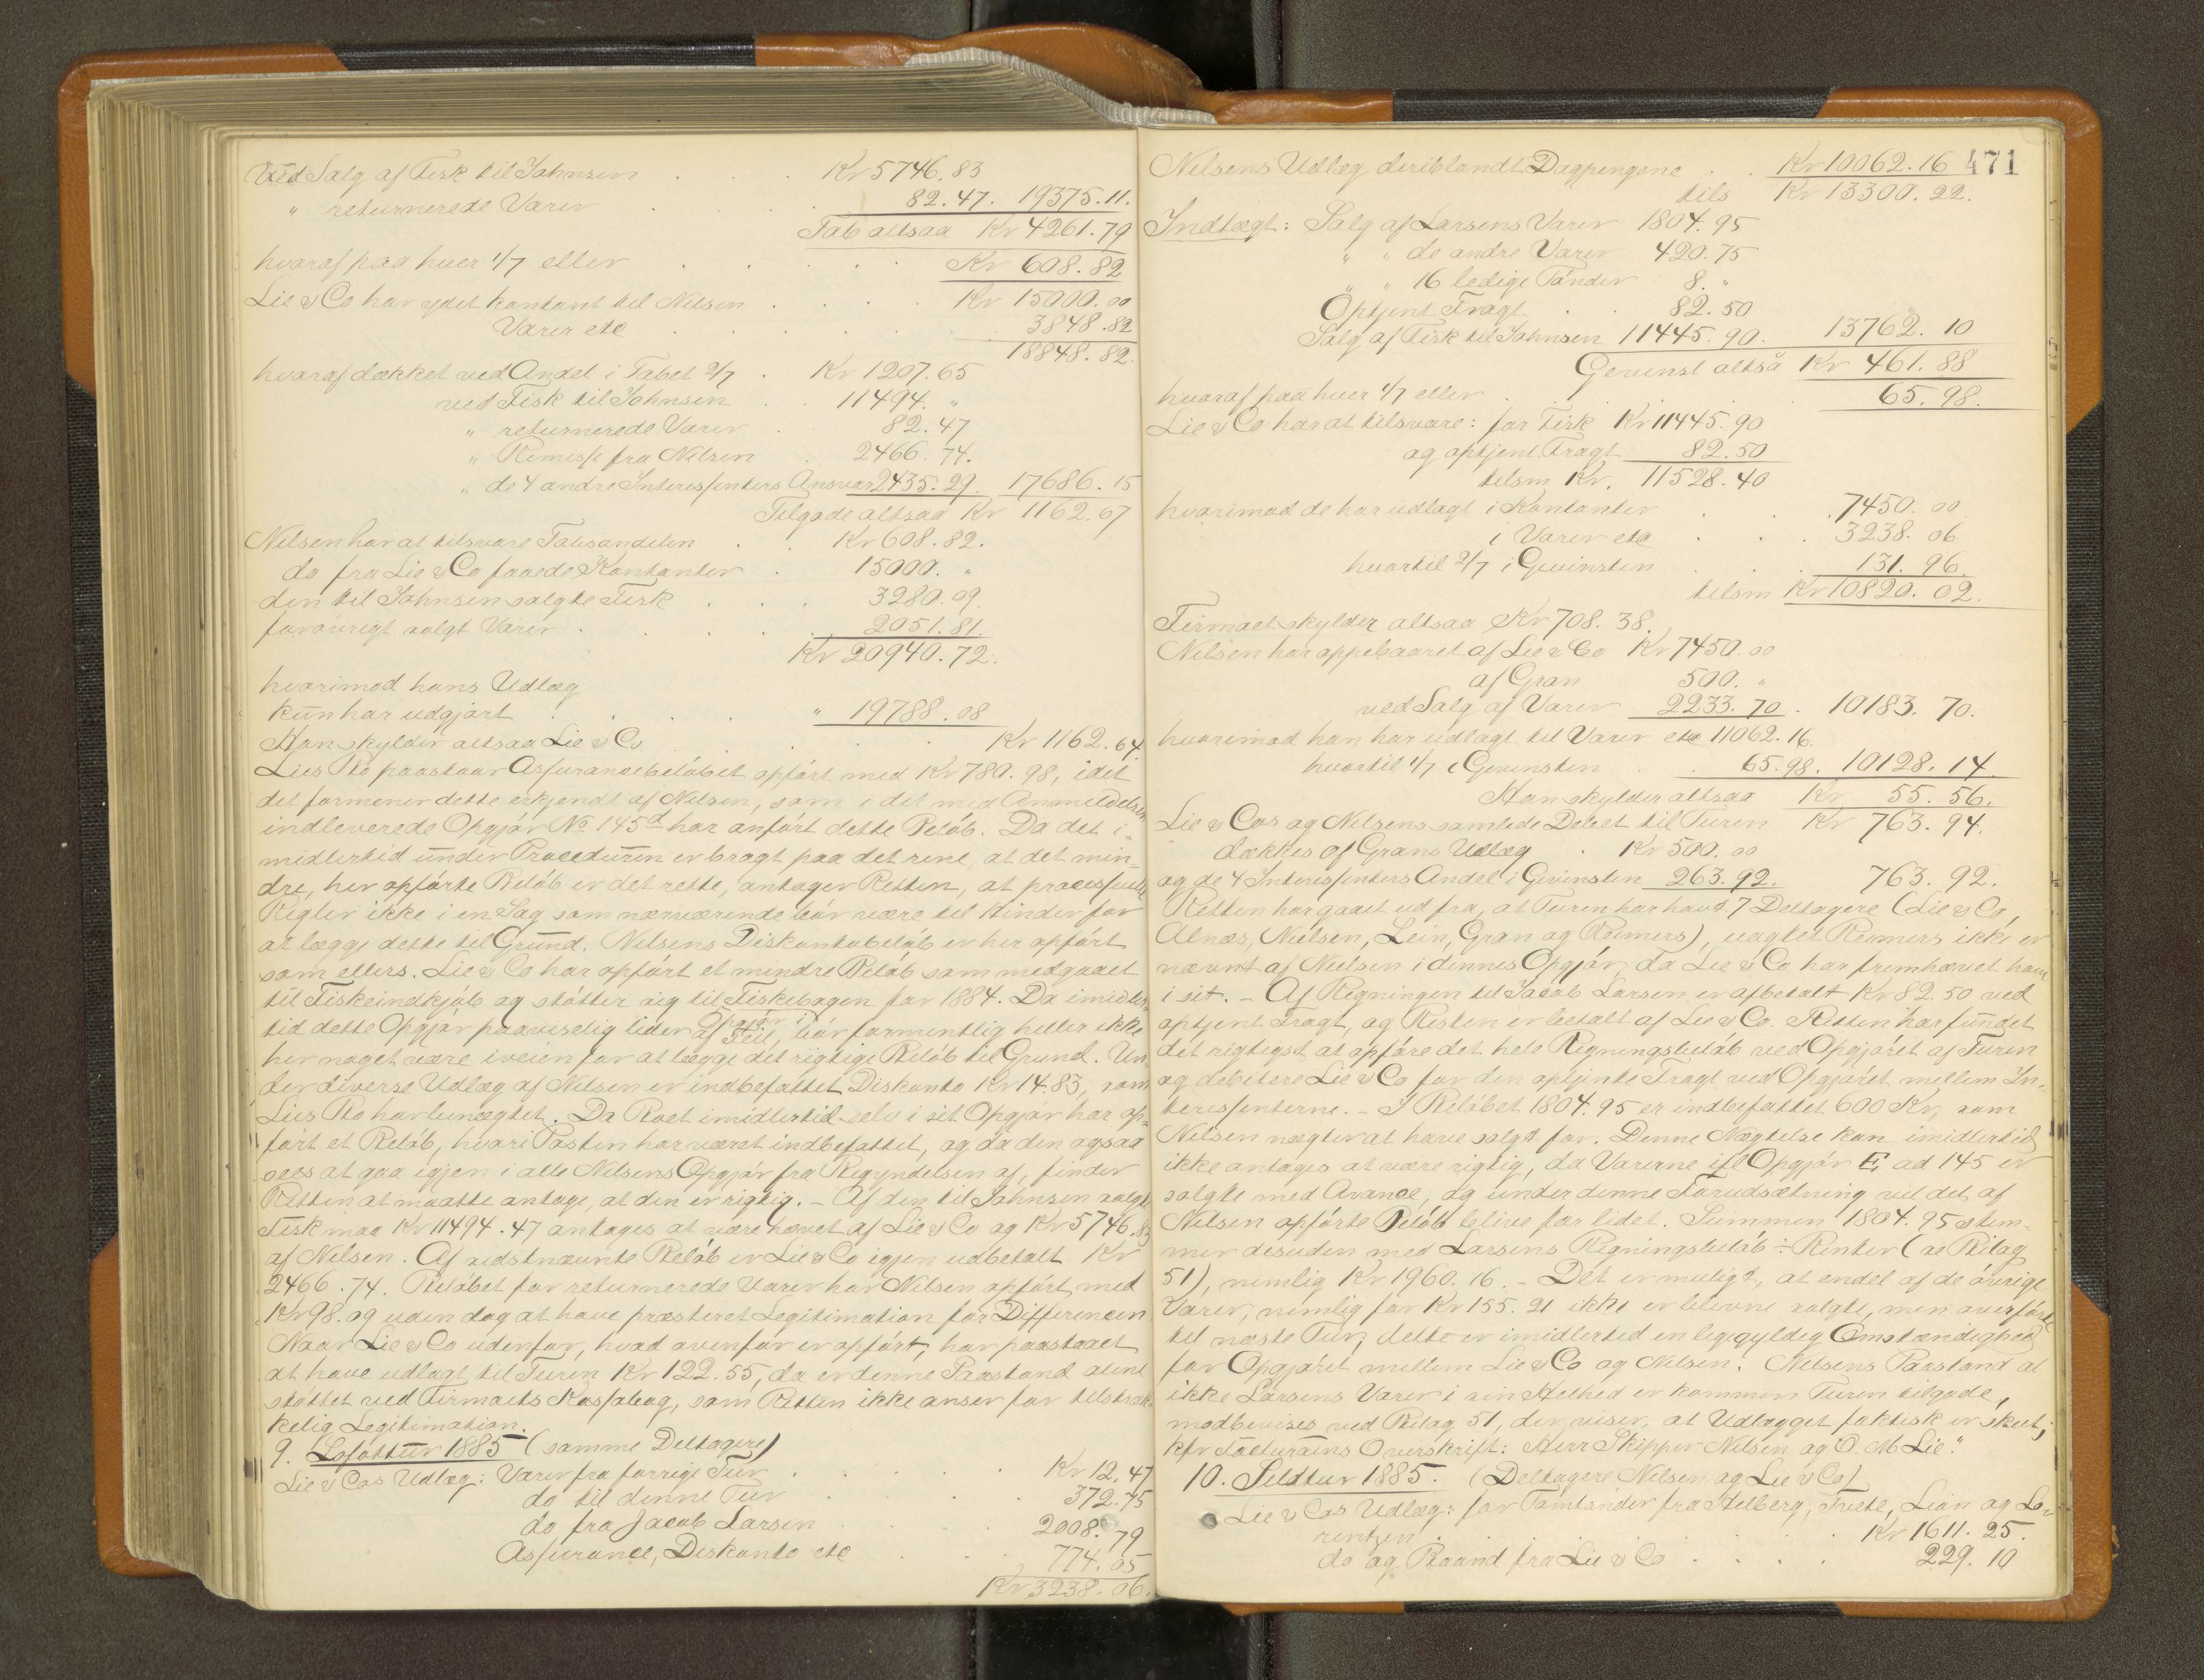 Ved Salg af Fisk til Johnsen . . . Kr 5746.83
" returnerede Varer . . . 82.47. 19375.11.
Tab altsaa Kr 4261.79
hvoraf paa hver 1/7 eller . . . . Kr 608.82
Lie & Co har ydet kontant til Nilsen . . . . Kr 15000.00
Varer etc . . . . 3848.82
18848.82.
hvoraf dækket ved Andel i Tabet 2/7 . Kr 1207.65
ved Fisk til Johnsen . . 11494. "
" returnerede Varer . 82.47
" Rimesse fra Nilsen . 2466.74.
" de 4 andre Interessenters Ansvar 2435.29. 17686.15
Tilgode altsaa Kr 1162.67
Nilsen har at tilsvare Tabsandelen . . Kr 608.82.
do fra Lie & Co faaede Kontanter . 15000. "
den til Johnsen solgte Fisk . . . 3280.09.
forøvrigt solgt Varer . . . . . 2051.81.
Kr 20940.72.
hvorimod hans Udlæg
kun har udgjort . . . . " 19788.08
Han skylder altsaa Lie & Co . . . . Kr 1162.64.
Lies Bo paastaar Assurancebeløbet opført med Kr 780.98, idet
det formener dette erkjendt af Nilsen, som i det med Anmeldelsen
indleverede Opgjør No 145d har anført dette Beløb. Da det i-
midlertid under Proceduren er bragt paa det rene, at det min-
dre, her opførte Beløb er det rette, antager Retten, at processuelle
Regler ikke i en Sag som nærværende bør være til Hinder for
at lægge dette til Grund. Nilsens Diskontobeløb er her opført
som ellers. Lie & Co har opført et mindre Beløb som medgaaet
til Fiskeindkjøb og støtter sig til Fiskebogen for 1884. Da imidler-
tid dette Opgjør paaviselig lider af Opgjør i Feil, bør formentlig heller ikke
her noget være iveien for at lægge det rigtige Beløb til Grund. Un-
der diverse Udlæg af Nilsen er indbefattet Diskonto Kr 14.83, som
Lies Bo har benægtet. Da Boet imidlertid selv i sit Opgjør har op-
ført et Beløb, hvori Posten har været indbefattet, og da den ogsaa
sees at gaa igjen i alle Nilsens Opgjør fra Begyndelsen af, finder
Retten at maatte antage, at den er rigtig. – Af den til Johnsen solgte
Fisk maa Kr 11494.47 antages at være hævet af Lie & Co og Kr 5746.83
af Nilsen. Af sidstnævnte Beløb er Lie & Co igjen udbetalt Kr
2466.74. Beløbet for returnerede Varer har Nilsen opført med
Kr 98.09 uden dog at have præsteret Legitimation for Differencen.
Naar Lie & Co udenfor, hvad ovenfor er opført, har paastaaet
at have udlagt til Turen Kr 122.55, da er denne Paastand alene
støttet ved Firmaets Kassabog, som Retten ikke anser for tilstræk-
kelig Legitimation.
9. Lofottur 1885 (samme Deltagere)
Lie & Cos Udlæg: Varer fra forrige Tur . . . . Kr 12.47
do til denne Tur . . . . 372.75
do fra Jacob Larsen . . . . 2008.79
Assurance, Diskonto etc . . . 774.05
Kr 3238.06.
471
Nilsens Udlæg deriblandt Dagpengene . . Kr 10062.16
tils Kr 13300.22.
Indtægt: Salg af Larsens Varer 1804.95
" " de andre Varer 420.75
" " 16 ledige Tønder 8. "
Optjent Fragt . . 82.50
Salg af Fisk til Johnsen 11445.90. 13762.10
Gevinst altså Kr 461.88
hvoraf paa hver 1/7 eller . . . . 65.98.
Lie & Co har at tilsvare: for Fisk Kr 11445.90
og optjent Fragt 82.50
tilsm Kr. 11528.40
hvorimod de har udlagt i Kontanter . . 7450.00
i Varer etc . . . 3238.06
hvortil 2/7 i Gevinsten . . . 131.96.
tilsm Kr 10820.02.
Firmaet skylder altsaa Kr 708.38.
Nilsen har oppebaaret af Lie & Co Kr 7450.00
af Gran 500. "
ved Salg af Varer 2233.70. 10183.70.
hvorimod han har udlagt til Varer etc 11062.16.
hvortil 1/7 i Gevinsten . . 65.98. 10128.14
Han skylder altsaa Kr 55.56.
Lie & Cos og Nilsens samlede Debet til Turen Kr 763.94.
dækkes af Grans Udlæg . Kr 500.00
og de 4 Interessenters Andel i Gevinsten 263.92. 763.92.
Retten har gaaet ud fra, at Turen har havt 7 Deltagere (Lie & Co,
Alnæs, Nielsen, Lein, Gran og Reimers), uagtet Reimers ikke er
nævnt af Nielsen i dennes Opgjør, da Lie & Co har fremhævet ham
i sit. – Af Regningen til Jacob Larsen er afbetalt Kr 82.50 ved
optjent Fragt, og Resten er betalt af Lie & Co. Retten har fundet
det rigtigst at opføre det hele Regningsbeløb ved Opgjøret af Turen
og debitere Lie & Co for den optjente Fragt ved Opgjøret mellem In-
teressenterne. – I Beløbet 1804.95 er indbefattet 600 Kr, som
Nilsen nægter at have solgt for. Denne Nægtelse kan imidlertid
ikke antages at være rigtig, da Varerne ifl Opgjør E, ad 145 er
solgte med Avance, og under denne Forudsætning vil det af
Nilsen opførte Beløb blive for lidet. Summen 1804.95 stem-
mer desuden med Larsens Regningsbeløb ÷ Renter (se Bilag
51), nemlig Kr 1960.16. – Det er muligt, at endel af de øvrige
Varer, nemlig for Kr 155.21 ikke er blevne solgte, men overførte
til næste Tur; dette er imidlertid en ligegyldig Omstændighed
for Opgjøret mellem Lie & Co og Nilsen. Nilsens Paastand at
ikke Larsens Varer i sin Helhed er kommen Turen tilgode,
modbevises ved Bilag 51, der viser, at Udlægget faktisk er skeet;
kfr Facturaens Overskrift: "Herr Skipper Nilsen og O. M Lie."
10. Sildtur 1885. (Deltagere Nilsen og Lie & Co)
Lie & Cos Udlæg: for Tomtønder fra Helberg, Tvete, Lian og Lo-
rentzen . . . . . Kr 1611.25.
do og Baand fra Lie & Co . . . . 229.10